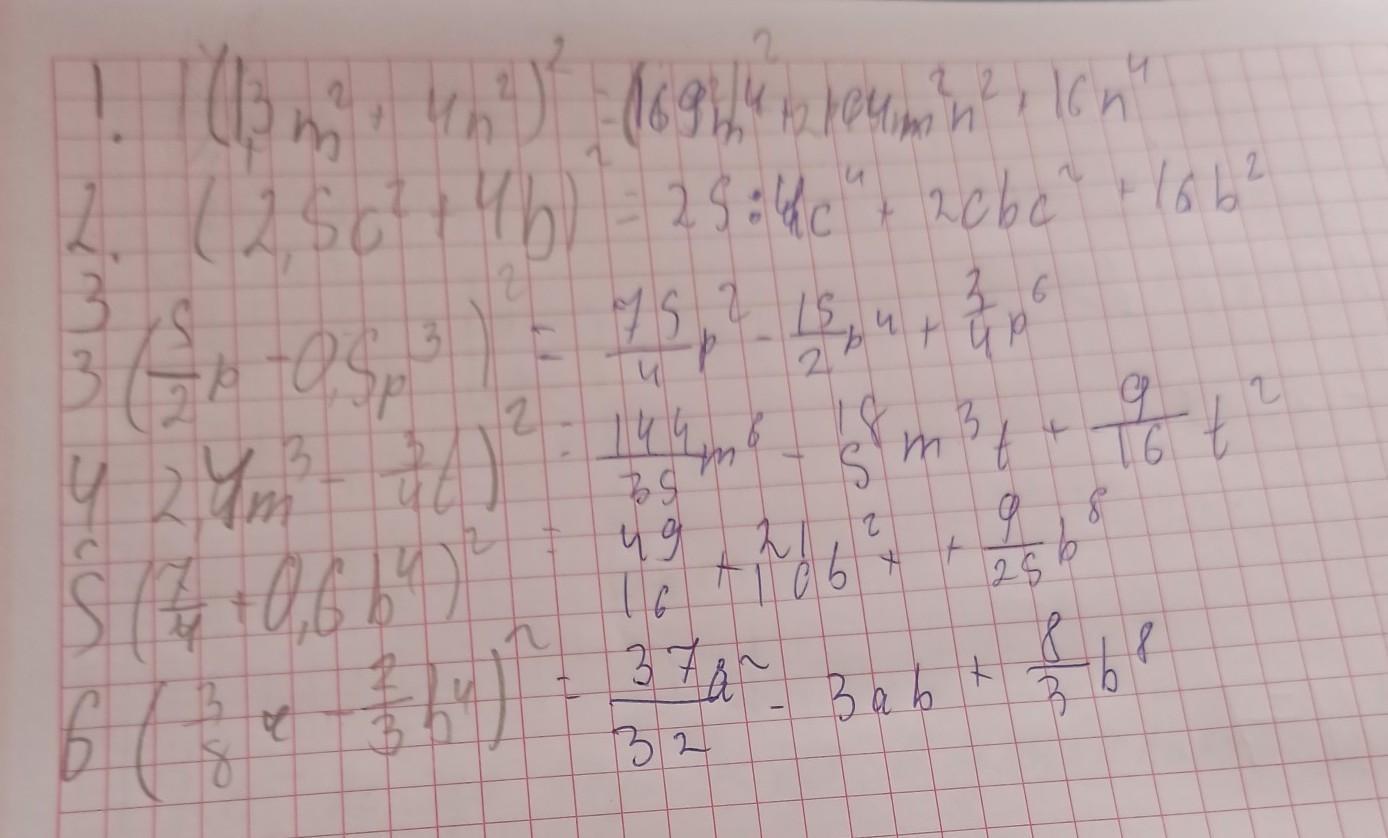 1. (13m² + 4n²)² = (169m⁴ + 2104m²n² + 16n⁴
2. (2,5c² + 4b)² = 25:4c⁴ + 20bc² + 16b²
3
3 (5/2 p - 0,5p³)² = 75/4 p² - 15/2 p⁴ + 3/4 p⁶
4 2,4m³ - 3/4 t)² = 144/35 m⁶ - 18/5 m³t + 9/16 t²
5 (7/4 + 0,6b⁴)² = 49/16 + 21/10 b² + + 9/25 b⁸
6 (3/8 a - 2/3 b⁴)² = 37a²/32 - 3ab + 8/3 b⁸